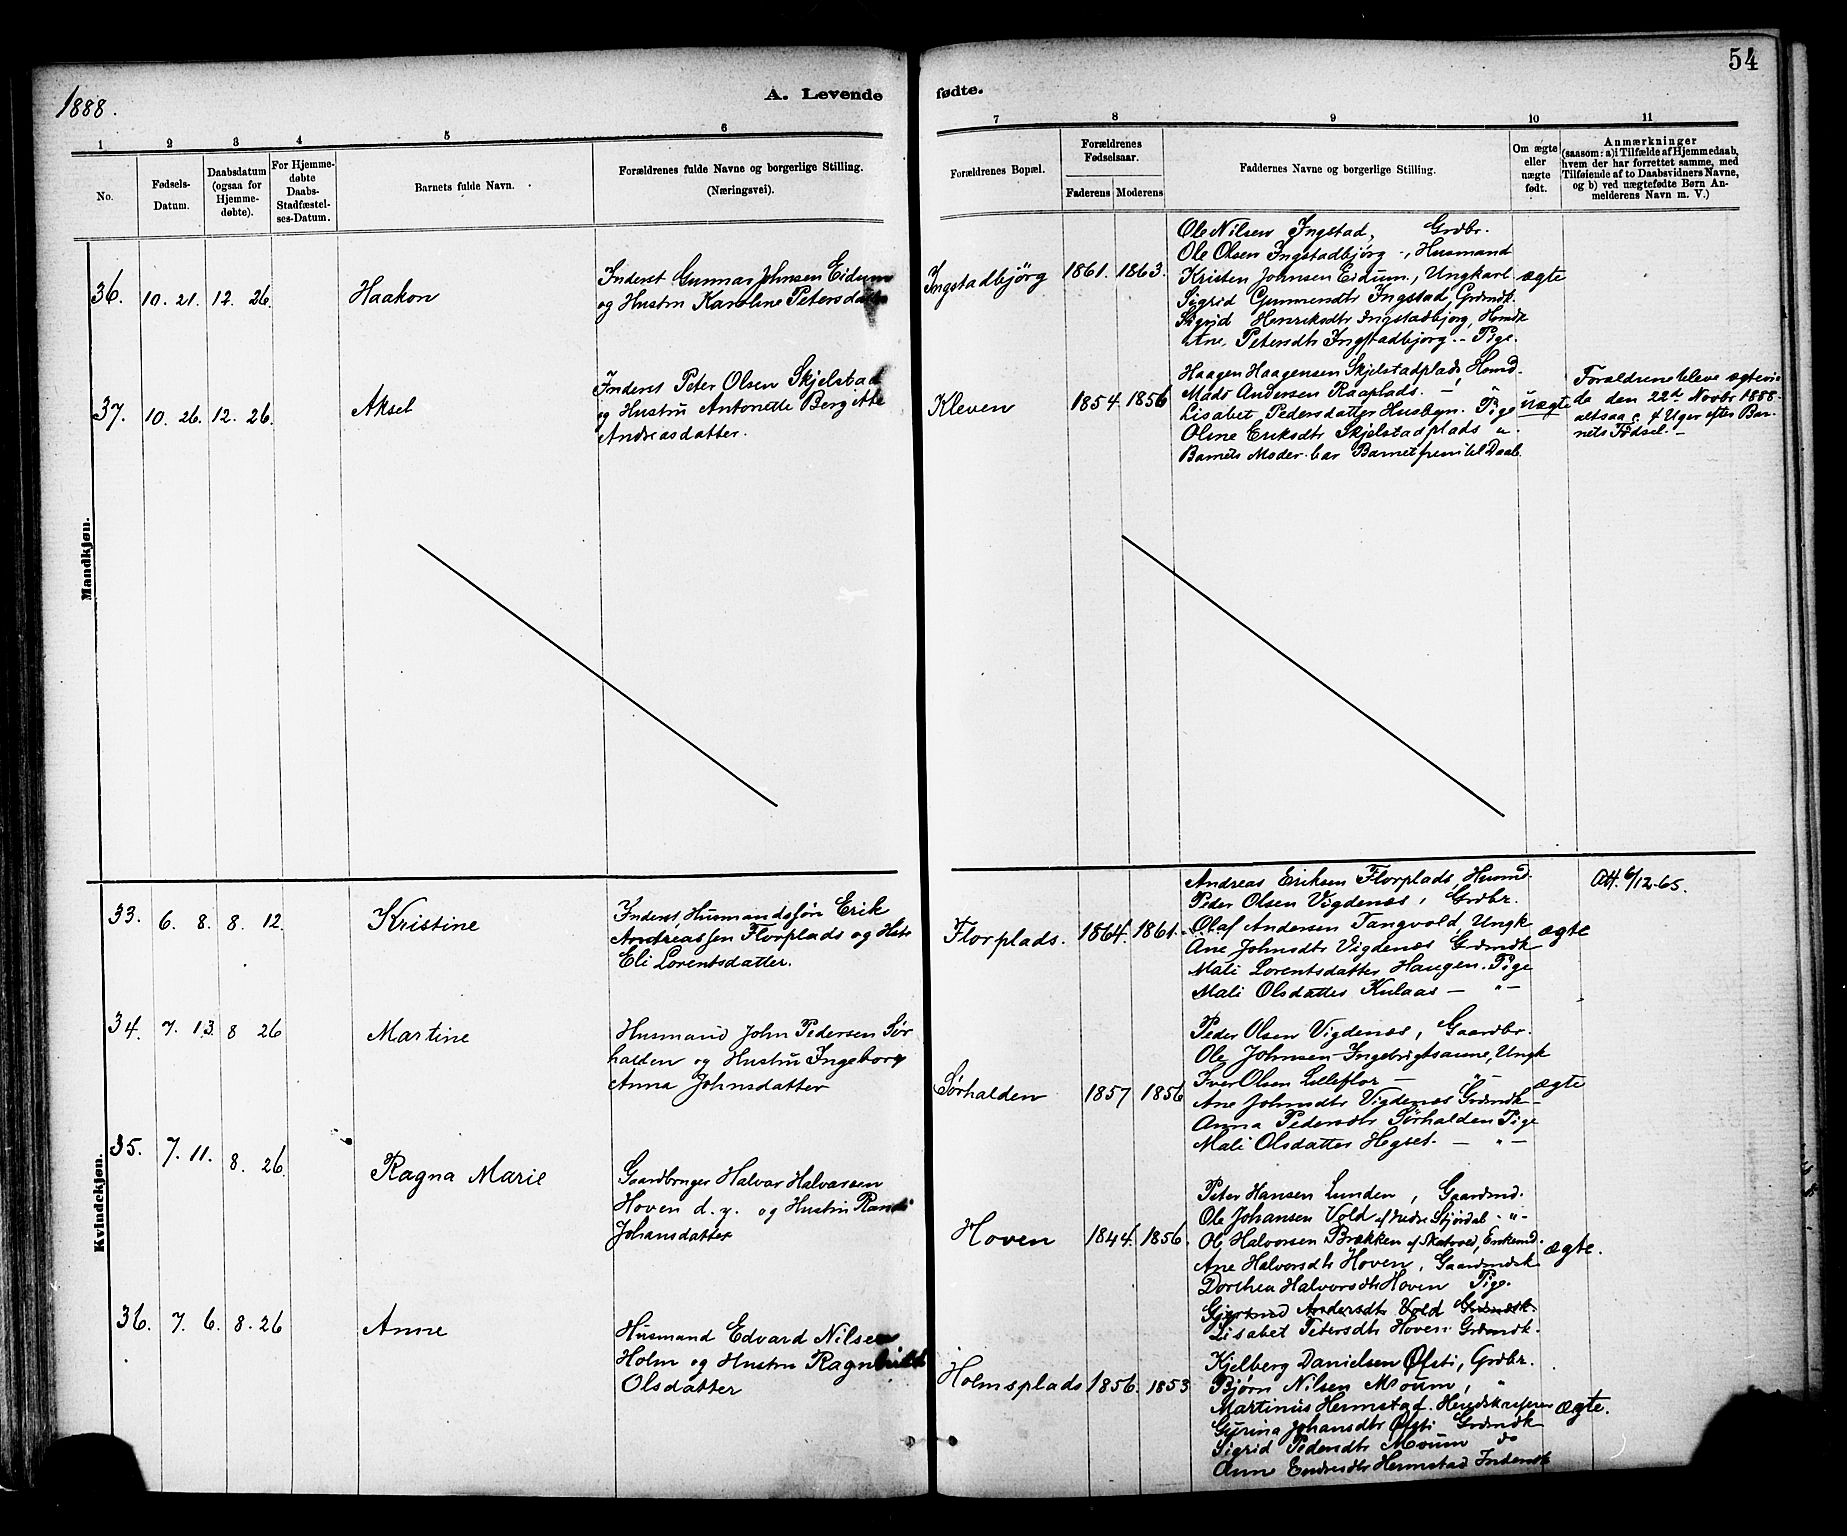 54
1888.
A. Levende
fødte.
1 2 3 4 5 6 7 8 9 10 11
No.
Fødsels-
Datum.
Daabsdatum
(ogsaa for
Hjemme-
døbte).
For Hjemme-
døbte
Daabs-
Stadfæstel-
ses-Datum.
Barnets fulde Navn.
Forældrenes fulde Navne og borgerlige Stilling.
(Næringsvei).
Forældrenes Bopæl.
Forældrenes
Fødselsaar.
Faderens Moderens
Faddernes Navne og borgerlige Stilling.
Om ægte
eller
nægte
født.
Anmærkninger
(saasom: a) i Tilfælde af Hjemmedaab,
hvem der har forrettet samme, med
Tilføiende af to Daabsvidners Navne,
og b) ved uægtefødte Børn An-
melderens Navn m. V.)
Mandkjøn.
36. 10. 21. 12. 26. Haakon
Inderst Gunnar Johnsen Eidum
og Hustru Karoline Petersdatter
Ingstadbjørg 1861. 1863.
Ole Nilsen Ingstad, Grdbr.
Ole Olsen Ingstadbjørg -, Husmand
Kristen Johnsen Eidum, Ungkarl
Sigrid Gunnersdtr Ingstad, Grdmdk.
Sigrid Henriksdtr Ingstadbjørg, Hsmdk
Ane Petersdtr Ingstadbjørg -- Pige.
ægte
37. 10. 26. 12. 26. Aksel
Inderst Peter Olsen Skjelstad
og Hustru Antonette Bergitte
Andreasdatter.
Kleven 1854. 1856
Haagen Haagensen Skjelstadplads, Hsmd.
Mads Andersen Raaplads. - "
Lisabet Pedersdatter Husbyn. Pige
Oline Eriksdtr Skjelstadplads ".
Barnets Moder bar Barnet frem til Daab.
uægte
Forældrene bleve ægtevie
de den 22de Novbr 1888.
altsaa c. 4 Uger efter Bar-
nets Fødsel. -
Kvindekjøn.
33. 6. 8. 8. 12. Kristine
Inderst, Husmandssøn Erik
Andreassen Florplads og Hstr
Eli Lorentsdatter.
Florplads. 1864. 1861.
Andreas Eriksen Florplads, Husmd.
Peder Olsen Vigdenæs, Grdbr.
Olaf Andersen Tangvold, Ungk
Ane Johnsdtr Vigdenæs Grdmdk
Mali Lorentsdatter Haugen. Pige
Mali Olsdatter Kulaas - " -
ægte
Att. 6/12-65.
34. 7. 13. 8 26 Martine
Husmand John Pedersen Sør
halden og Hustru Ingeborg
Anna Johnsdatter
Sørhalden 1857 1856
Peder Olsen Vigdenæs, Gaardbr.
Ole Johnsen Ingebrigtsaune, Ungk
Iver Olsen Lilleflor - " -
Ane Johnsdtr Vigdenæs Grdmdk
Anna Pedersdtr Sørhalden Pige
Mali Olsdatter Hegset. - " -
ægte
35. 7. 11. 8. 26. Ragna Marie
Gaardbruger Halvar Halvarsen
Hoven d. y. og Hustru Randi
Johansdatter
Hoven 1844. 1856.
Peter Hansen Lunden, Gaardmd.
Ole Johansen Vold af Nedre Stjørdal - " -
Ole Halvorsen Brækken af Skatvold, Enkemd.
Ane Halvorsdtr Hoven, Gaardmdsk
Dorthea Halvorsdtr Hoven Pige.
Gjertrud Andersdtr Vold Grdmdsk.
Lisabet Petersdtr Hoven Grdmdk.
ægte.
36. 7. 6. 8. 26 Anne
Husmand Edvard Nilsen
Holm og Hustru Ragnhild
Olsdatter
Holmsplads 1856. 1853
Kjelberg Danielsen Øfsti, Grdbr.
Bjørn Nilsen Moum, "
Martinus Hermstad.
Gurina Johansdtr Øfsti Grdmdk
Sigrid Pedersdtr Moum do
Anne Endresdtr Hermstad Inderst
ægte.